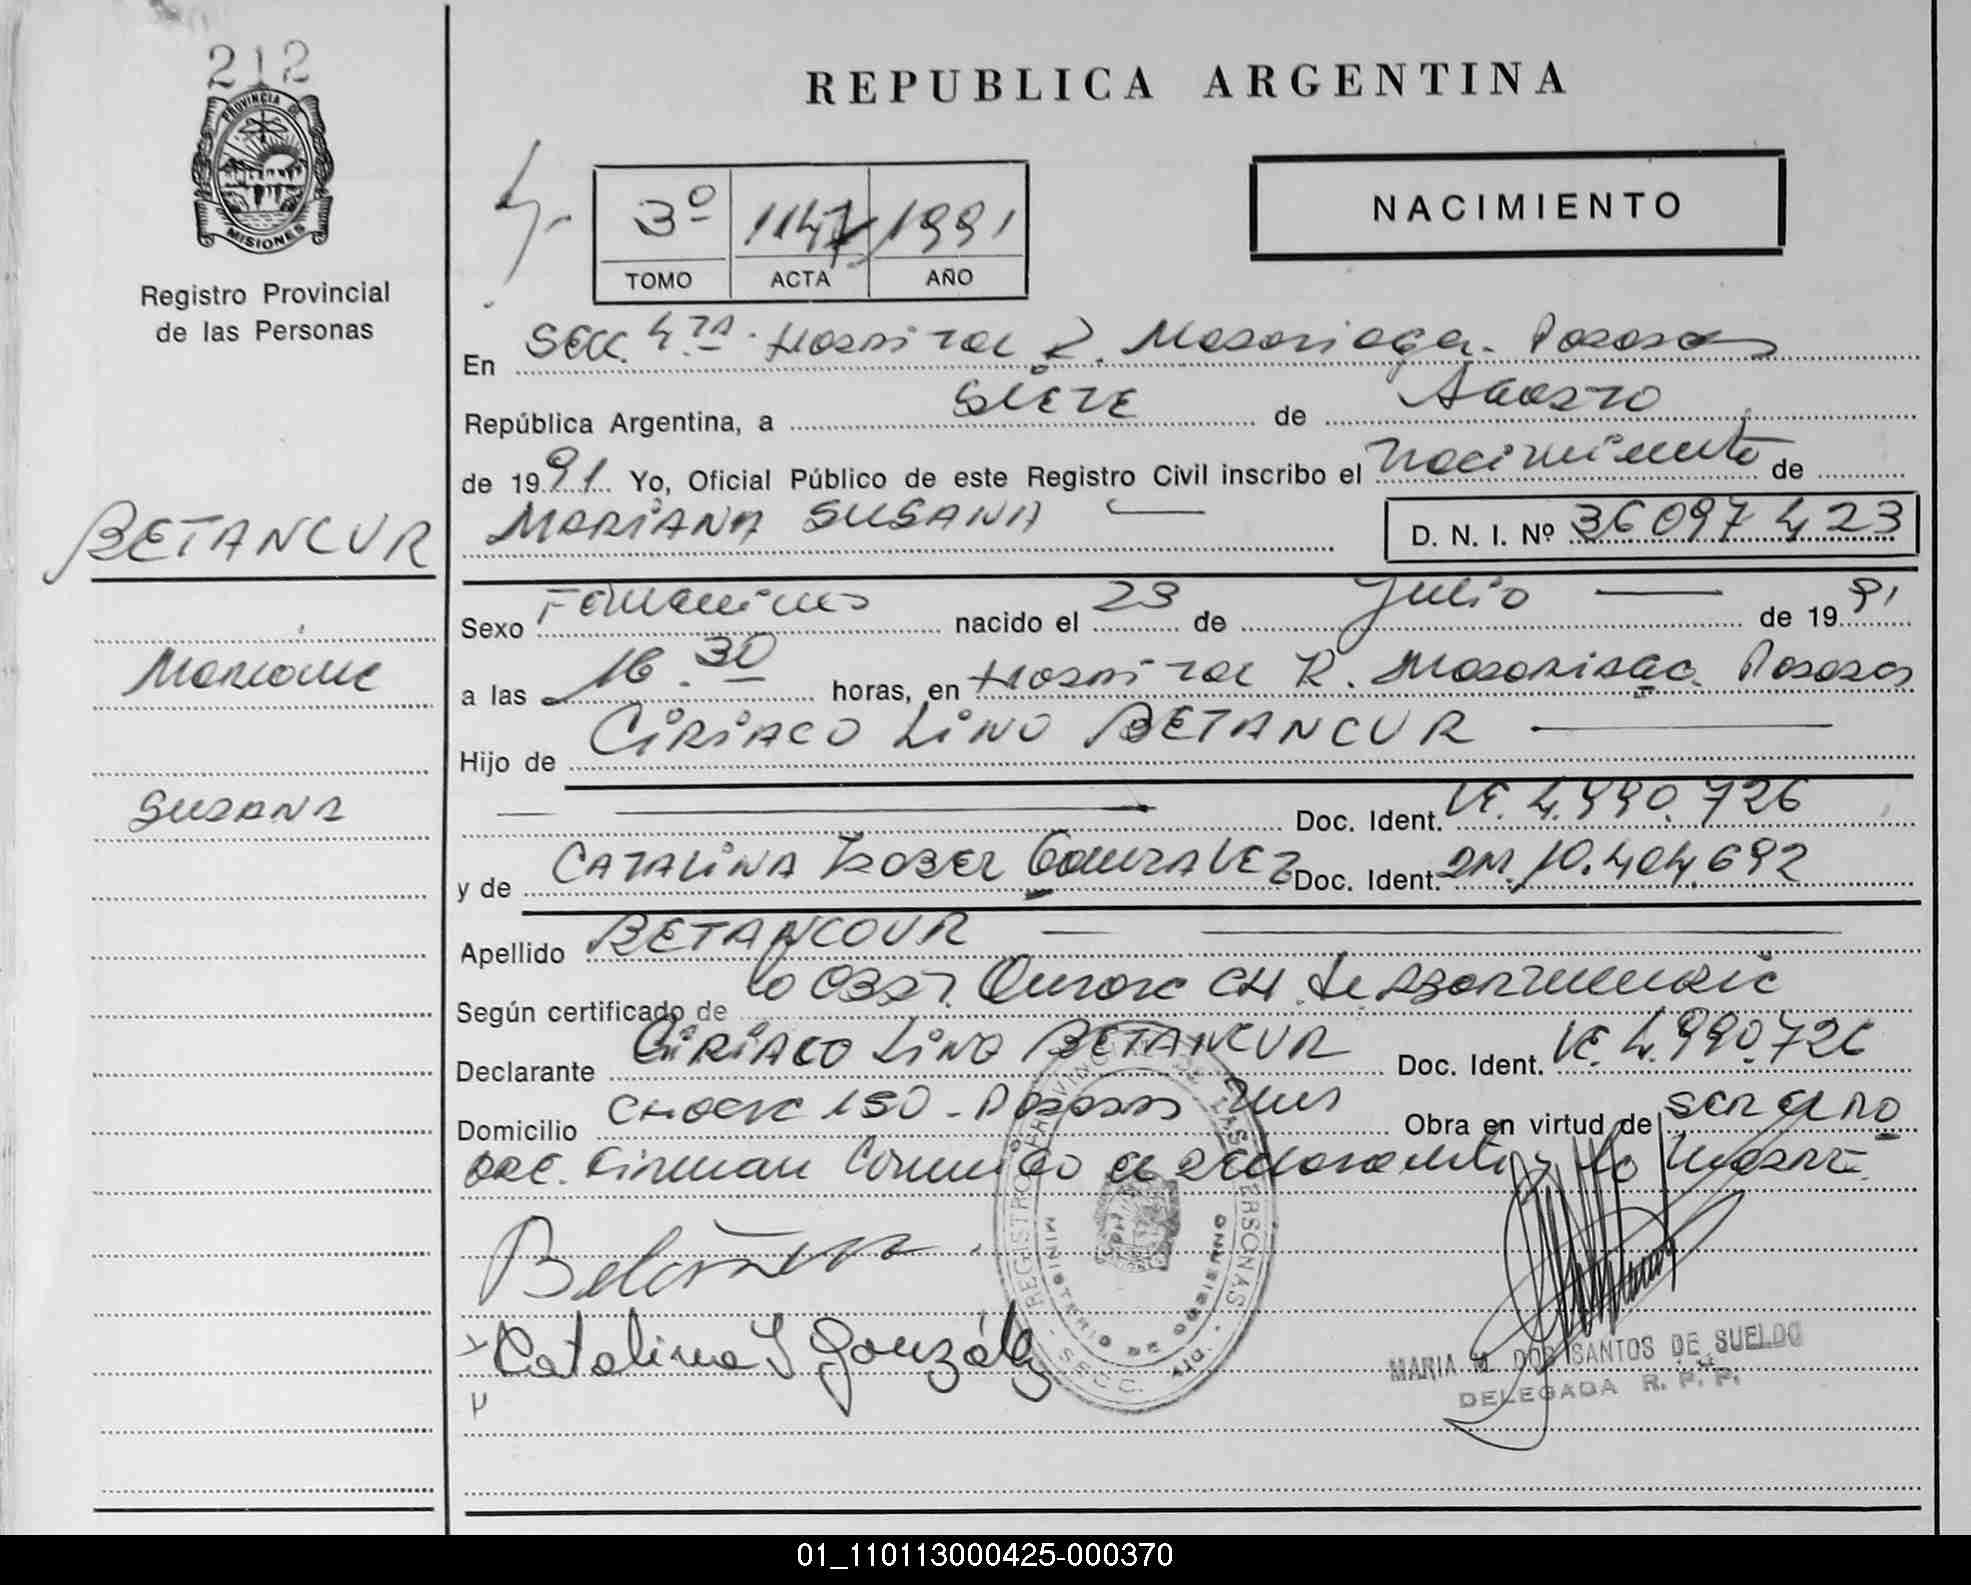 212
PROVINCIA DE
MISIONES
Registro Provincial
de las Personas
BETANCUR
Mariana
SUSANA
REPUBLICA ARGENTINA
NACIMIENTO
3º 1147 1991
TOMO ACTA AÑO
En Secc. 4ta. Hospital R. Madariaga. Posadas
República Argentina, a SIETE de Agosto
de 1991 Yo, Oficial Público de este Registro Civil inscribo el nacimiento de
MARIANA SUSANA
D. N. I. Nº 36097423
Sexo Femenino nacido el 23 de Julio de 1991
a las 16.30 horas, en Hospital R. Madariaga. Posadas
Hijo de CIRIACO LINO BETANCUR
Doc. Ident. LE. 4.990.726
y de CATALINA ISABEL GONZALEZ Doc. Ident. DNI. 10.404.692
Apellido BETANCOUR
Según certificado de la Obst.
Declarante CIRIACO LINO BETANCUR Doc. Ident. LE. 4.990.726
Domicilio 150 - Posadas Mnes Obra en virtud de ser el PD
DRE. Firman el declarante y la madre
Betancur
Catalina I González
REGISTRO PROVINCIAL DE LAS PERSONAS
MINISTERIO DE GOBIERNO
SECC.
MARIA M. DOS SANTOS DE SUELDO
DELEGADA R. P. P.
01_110113000425-000370